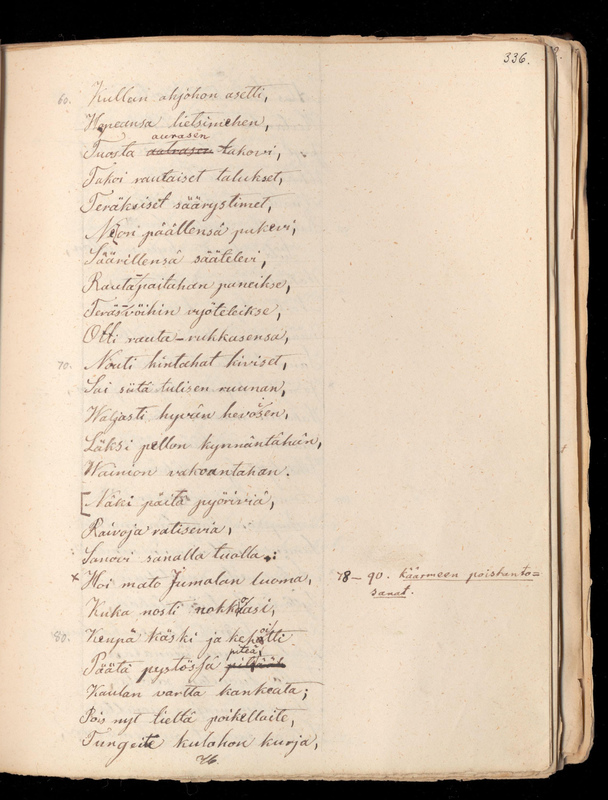 336.
60. Kullan ahjohon asetti,
Hopeansa lietsimehen,
aurasen
Tuosta aatrasen takovi,
Takoi rautaiset talukset,
Teräksiset säärystimet,
Neori päällensä pukevi,
Säärillensä säätelevi,
Rautapaitahan paneikse,
Teräsvöihin vyöteleikse,
Otti rauta-rukkasensa,
70. Nouti hintahat kiviset,
Sai siitä tulisen ruunan,
Waljasti hyvän hevoisen,
Läksi pellon kynnäntähän,
Wainion vakoantahan.
[Näki päitä pyöriviä,
Raivoja ratisevia,
Sanovi sanalla tuolla:
x Hoi mato Jumalan luoma, 78–90. Käärmeen poishanto=
sanat.
Kuka nosti nokkoasi,
80. Kenpä käski ja kehoitti
piteä
Päätä pystössä
Kaulan vartta kankeata;
Pois nyt tieltä poikellaite,
Tungeite kulohon kurja,